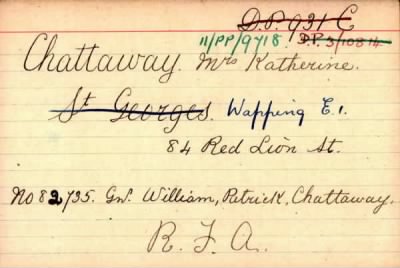 D.P. 931 C
11/PP/9718. D.P. 3/10814
Chattaway. Mrs Katherine.
St Georges. Wapping E.1.
84 Red Lion St.
No 82735. Gnr. William, Patrick, Chattaway.
R. F. A.